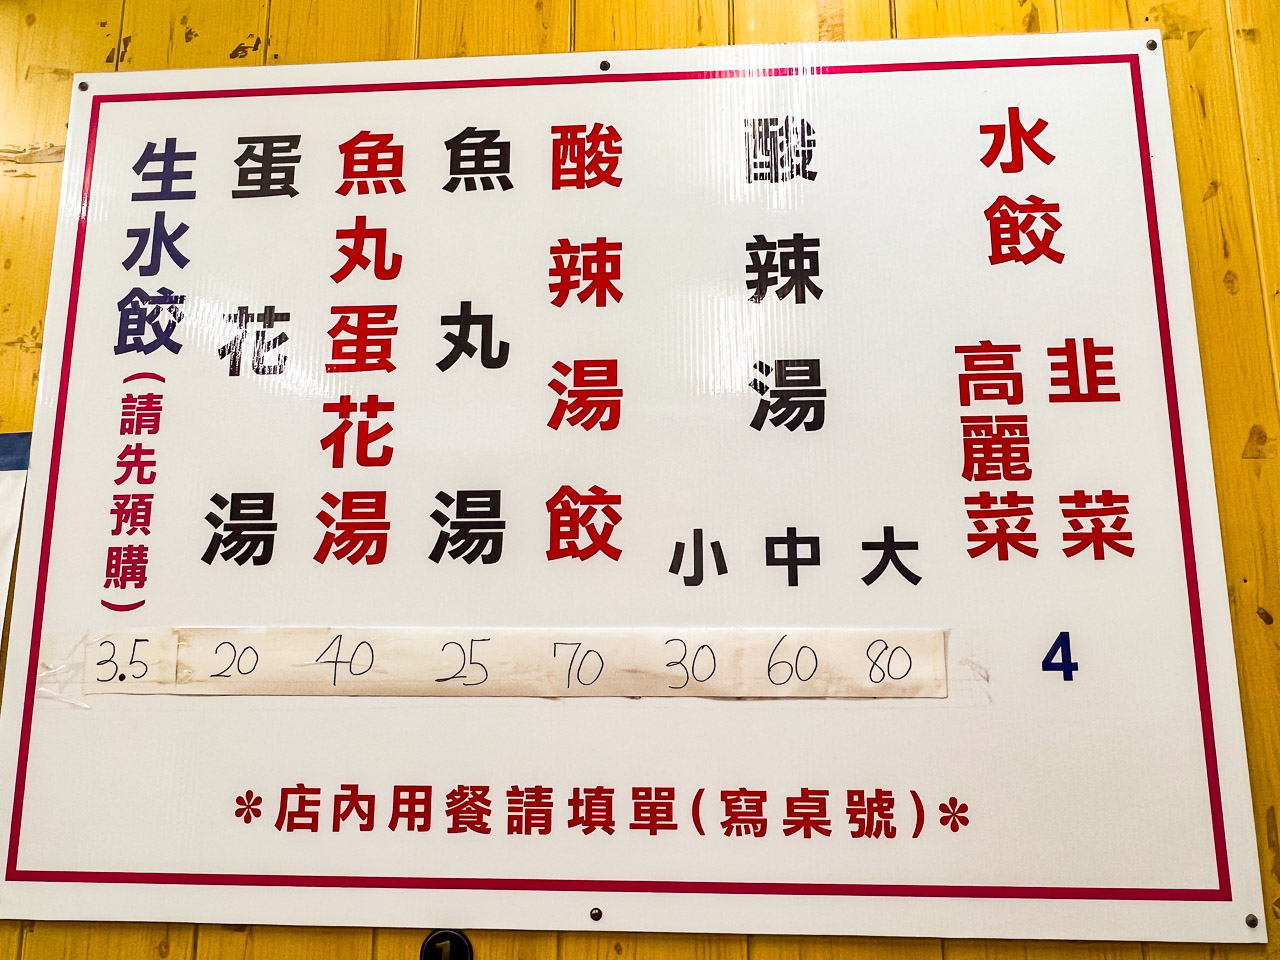 水餃
韭菜
高麗菜
4
酸辣湯
大
80
中
60
小
30
酸辣湯餃
70
魚丸湯
25
魚丸蛋花湯
40
蛋花湯
20
生水餃(請先預購)
3.5
*店內用餐請填單(寫桌號)*
1